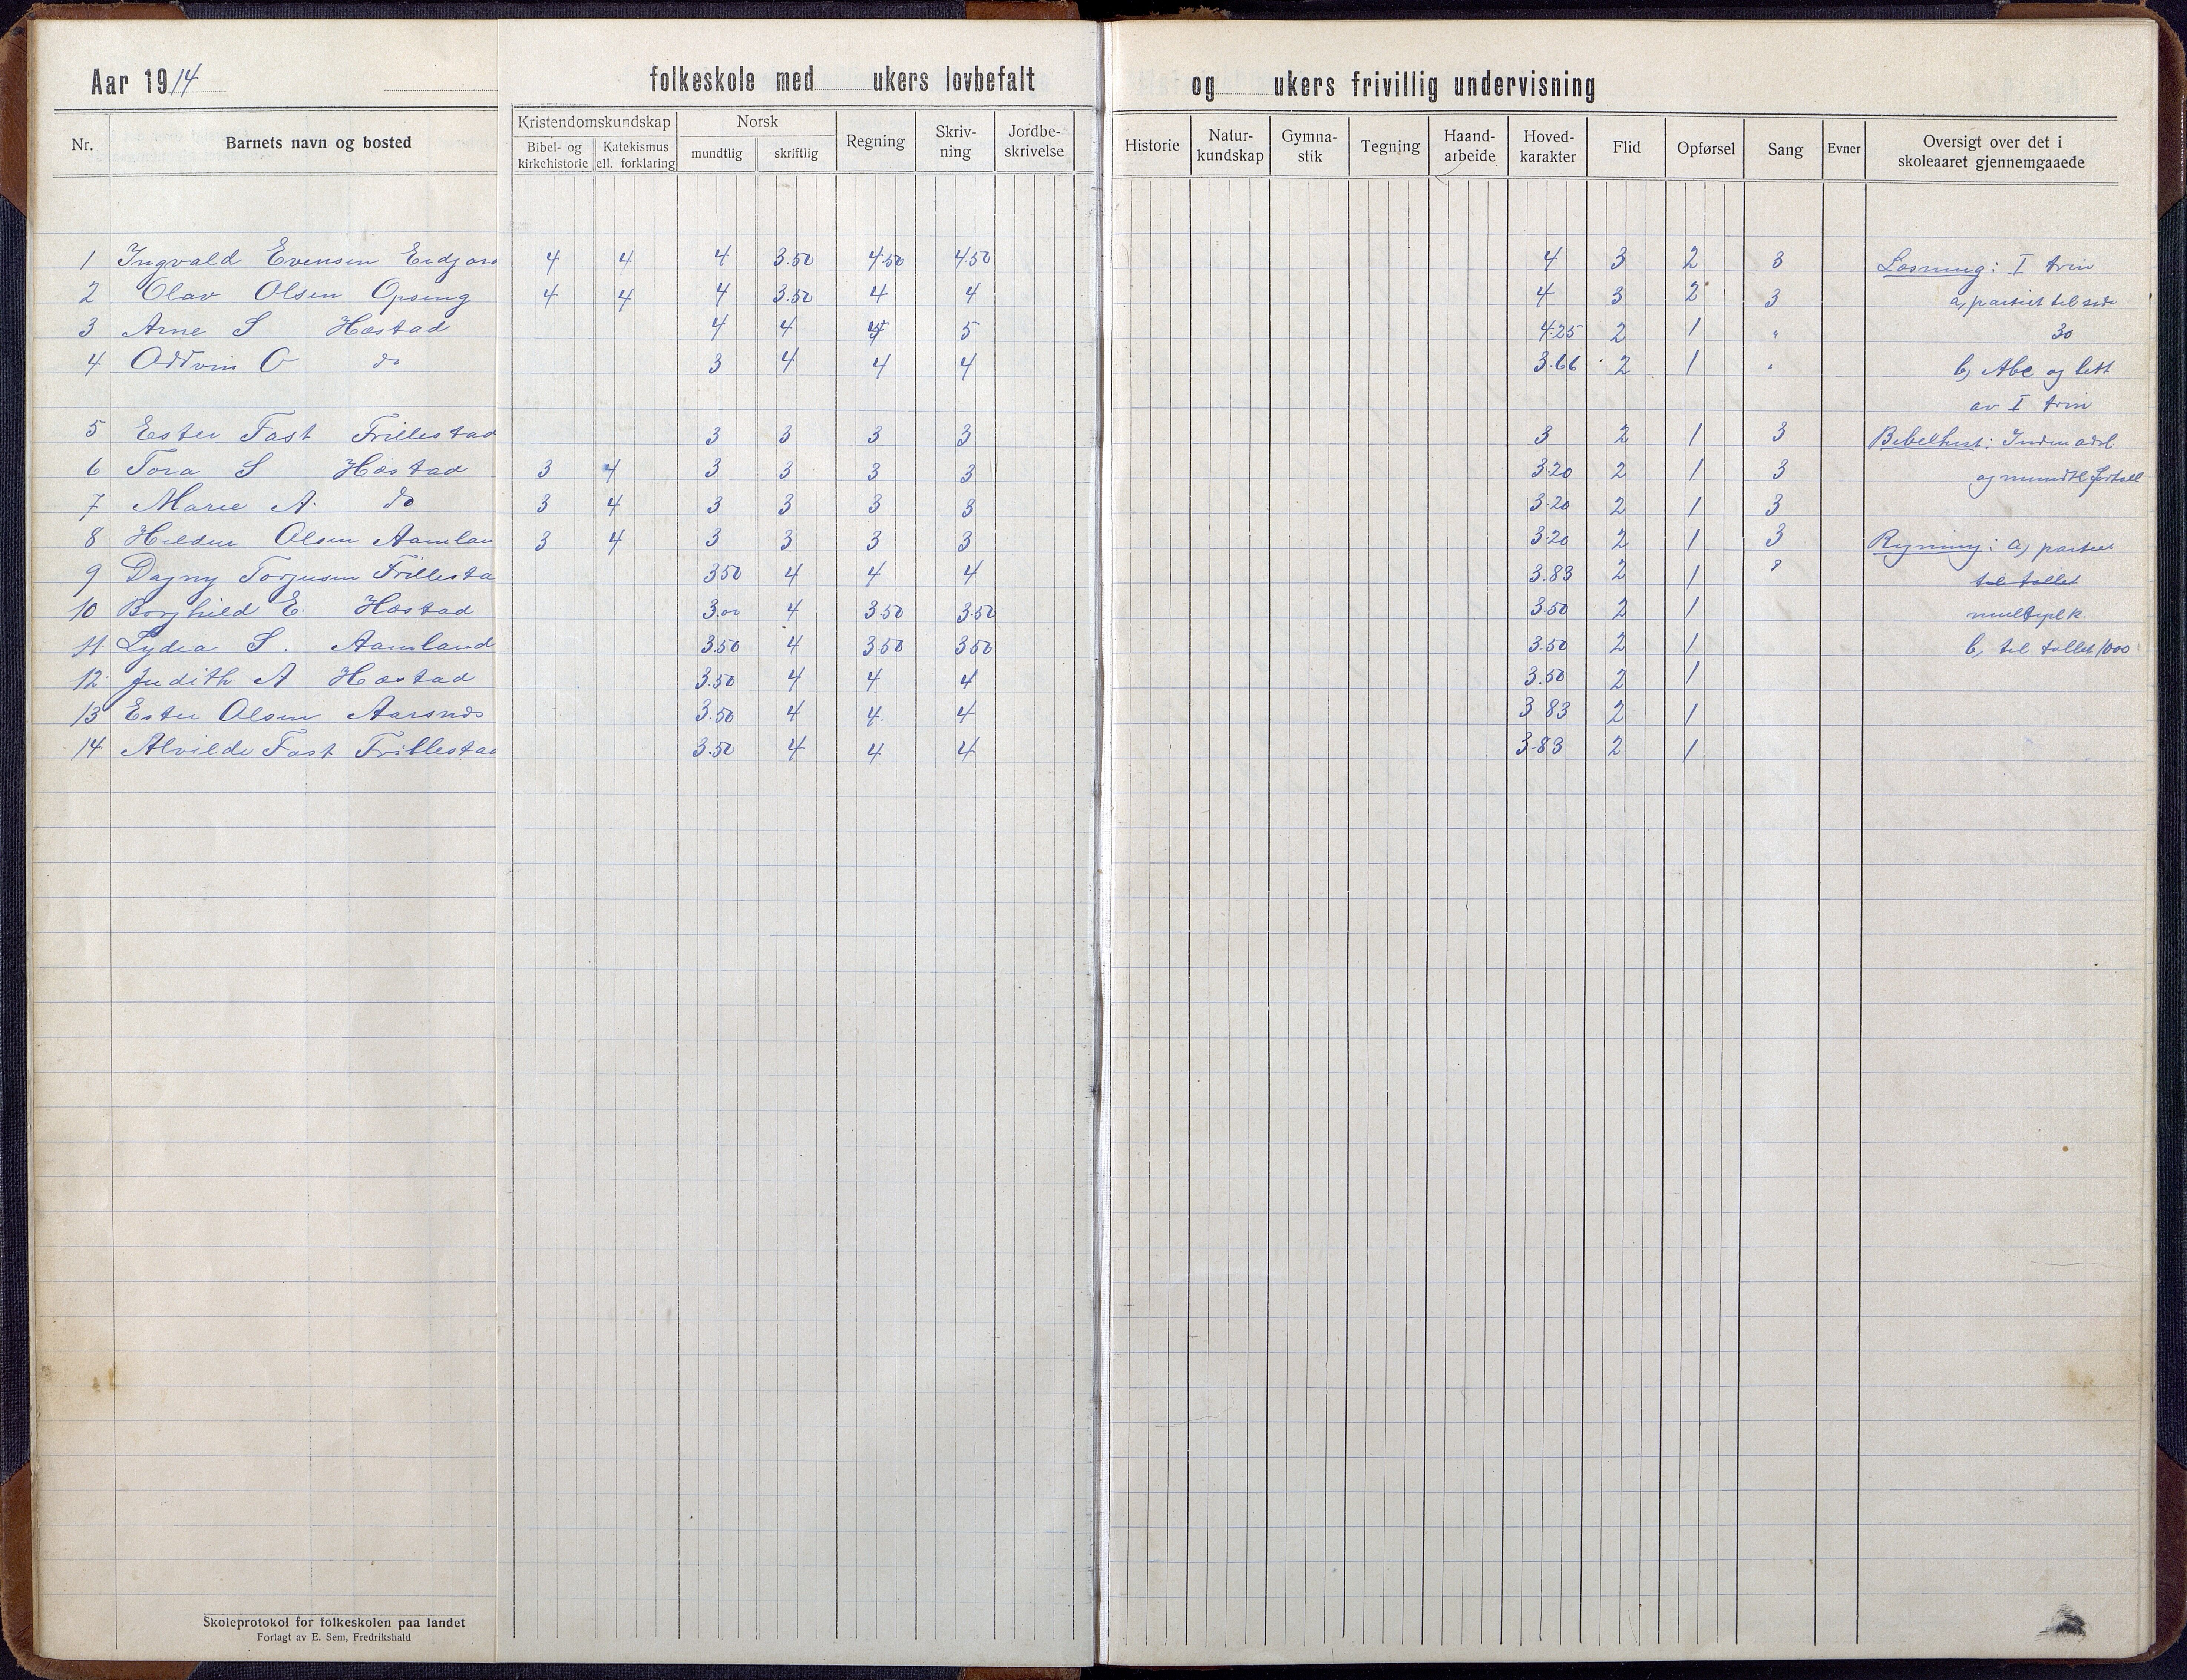 Aar 1914
folkeskole med ukers lovbefalt
og ukers frivillig undervisning
Nr.
Barnets navn og bosted
Kristendomskundskap
Bibel- og kirkehistorie
Katekismus ell. forklaring
Norsk
mundtlig
skriftlig
Regning
Skriv-
ning
Jordbe-
skrivelse
Historie
Natur-
kundskap
Gymna-
stik
Tegning
Haand-
arbeide
Hoved-
karakter
Flid
Opførsel
Sang
Evner
Oversigt over det i
skoleaaret gjennemgaaede
1 Ingvald Evensen 4 4 4 3.50 4.50 4.50 4 3 2 3 Læsning: I trin
2 Olav Olsen 4 4 4 3.50 4 4 4 3 2 3 a, partiet til side
3 Arne S Hæstad 4 4 4 5 4.25 2 1 " 30
4 Oddvin O do 3 4 4 4 3.66 2 1 " b, Abc og litt
av I trin
5 Ester Fast Frillestad 3 3 3 3 3 2 1 3 Bibelhist:
6 Tora S Hæstad 3 4 3 3 3 3 3.20 2 1 3 og mundtl. fortæll
7 Marie A. do 3 4 3 3 3 3 3.20 2 1 3
8 Olsen Aamlan 3 4 3 3 3 3 3.20 2 1 3 Regning: a, partiet
9 Dagny Torjusen Frillesta 3.50 4 4 4 3.83 2 1 til tallet
10 Borghild E. Hæstad 3.00 4 3.50 3.50 3.50 2 1 multiplk.
11 Lydia S. Aamland 3.50 4 3.50 3.50 3.50 2 1 b, til tallet 1000
12 Judith A Hæstad 3.50 4 4 4 3.50 2 1
13 Ester Olsen Aarsnes 3.50 4 4 4 3.83 2 1
14 Alvilde Fast Frillestad 3.50 4 4 4 3.83 2 1
Skoleprotokol for folkeskolen paa landet
Forlagt av E. Sem, Fredrikshald